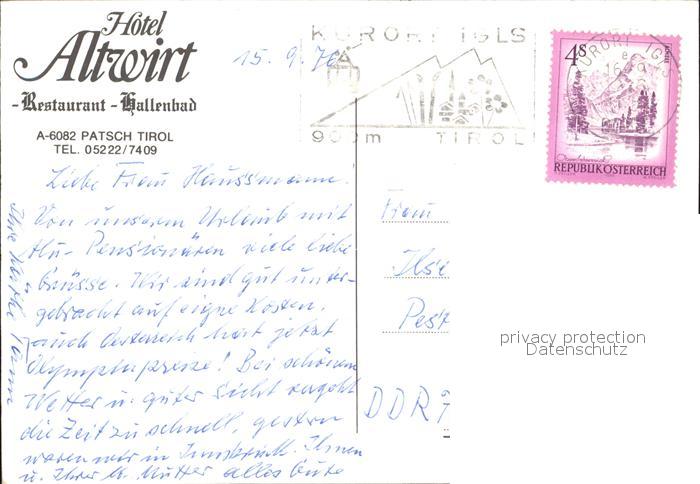 Hotel
Altwirt
-Restaurant - Hallenbad
A-6082 PATSCH TIROL
TEL. 05222/7409
15.9.76
KURORT IGLS
900m TIROL
4S
KURORT IGLS
REPUBLIK ÖSTERREICH
Liebe Frau Haussmann.
Von unserem Urlaub mit
Pensionären viele liebe
Grüsse. Wir sind gut unter-
gebracht auf eigne Kosten.
auch Oesterreich hat jetzt
Olympiapreise! Bei schönem
Wetter u. guter Sicht vergeht
die Zeit zu schnell, gestern
waren wir in Innsbruck. Ihnen
u. Ihrer Mutter alles Gute
Ihre Käthe
Frau
Ilse
Pest
DDR 7
privacy protection
Datenschutz